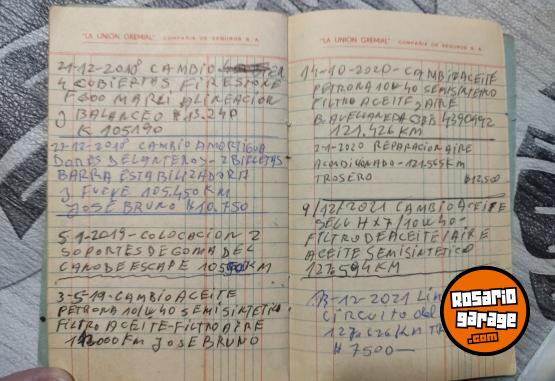 "LA UNION GREMIAL" COMPAÑIA DE SEGUROS S. A.
21-12-2018 CAMBIO
4 CUBIERTAS FIRESTONE
F600 MARLI ALINEACION
J BALANCEO $13.240
K 105190
27-12-2018 CAMBIO AMORTIGUA
DORES DELANTEROS-2 BIELETAS
BARRA ESTABILIZADORA
J FUEYE 105.450 KM
JOSE BRUNO $10.750
5-1-2019-COLOCACION 2
SOPORTES DE GOMA DEL
CANO DE ESCAPE KM
3-5-19-CAMBIO ACEITE
PETRONA 10W40 SEMISINTETICO
FILTRO ACEITE-FILTRO AIRE
JOSE BRUNO
"LA UNION GREMIAL" COMPAÑIA DE SEGUROS S. A.
14-10-2020-CAMBIO ACEITE
PETRONA 10W40 SEMISINTETICO
FILTRO ACEITE, AIRE
B. AVELLANEDA
121.426 KM
2-1-2020 REPARACION AIRE
ACONDICIONADO-121.565 KM
TROSERO $12.500
9/12/2021 CAMBIO ACEITE
SELL HX7/10W40-
FILTRO DE ACEITE/AIRE
ACEITE SEMISINTETICO
127.594 KM
13-12-2021
circuito del
127.626 KM
$ 7500-
Rosario
garage
.com